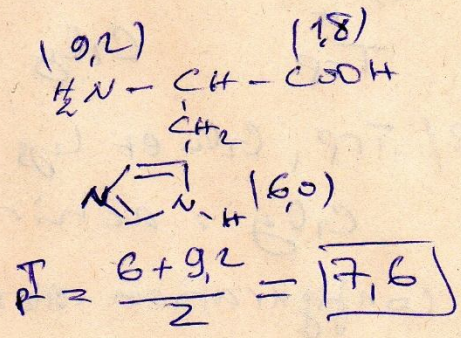 (9,2) (1,8)
H2N - CH - COOH
CH2
N N-H (6,0)
pI = 6+9,2 / 2 = 7,6